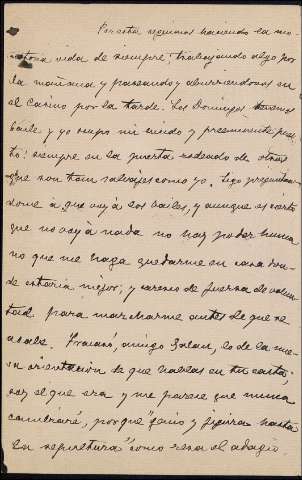 Por esta seguimos haciendo la mo-
notona vida de siempre: trabajando algo por
la mañana y paseando y aburriendonos en
el Casino por la tarde. Los Domingos tenemos
baile y yo ocupo mi unico y preeminente pues-
to: siempre en la puerta rodeado de otros
que son tan salvajes como yo. Sigo preguntan-
dome á que voy á los bailes, y aunque es cierto
que no voy á nada no hay poder huma
no que me haga quedarme en casa don-
de estaria mejor; y carezco de fuerza de volun
tad para marcharme antes de que se
acabe. Fracasó, amigo, lo de la nue-
va orientación de que hablas en tu carta;
soy el que era y me parece que nunca
cambiaré, porque "genio y figura hasta
la sepultura" como reza el adagio.